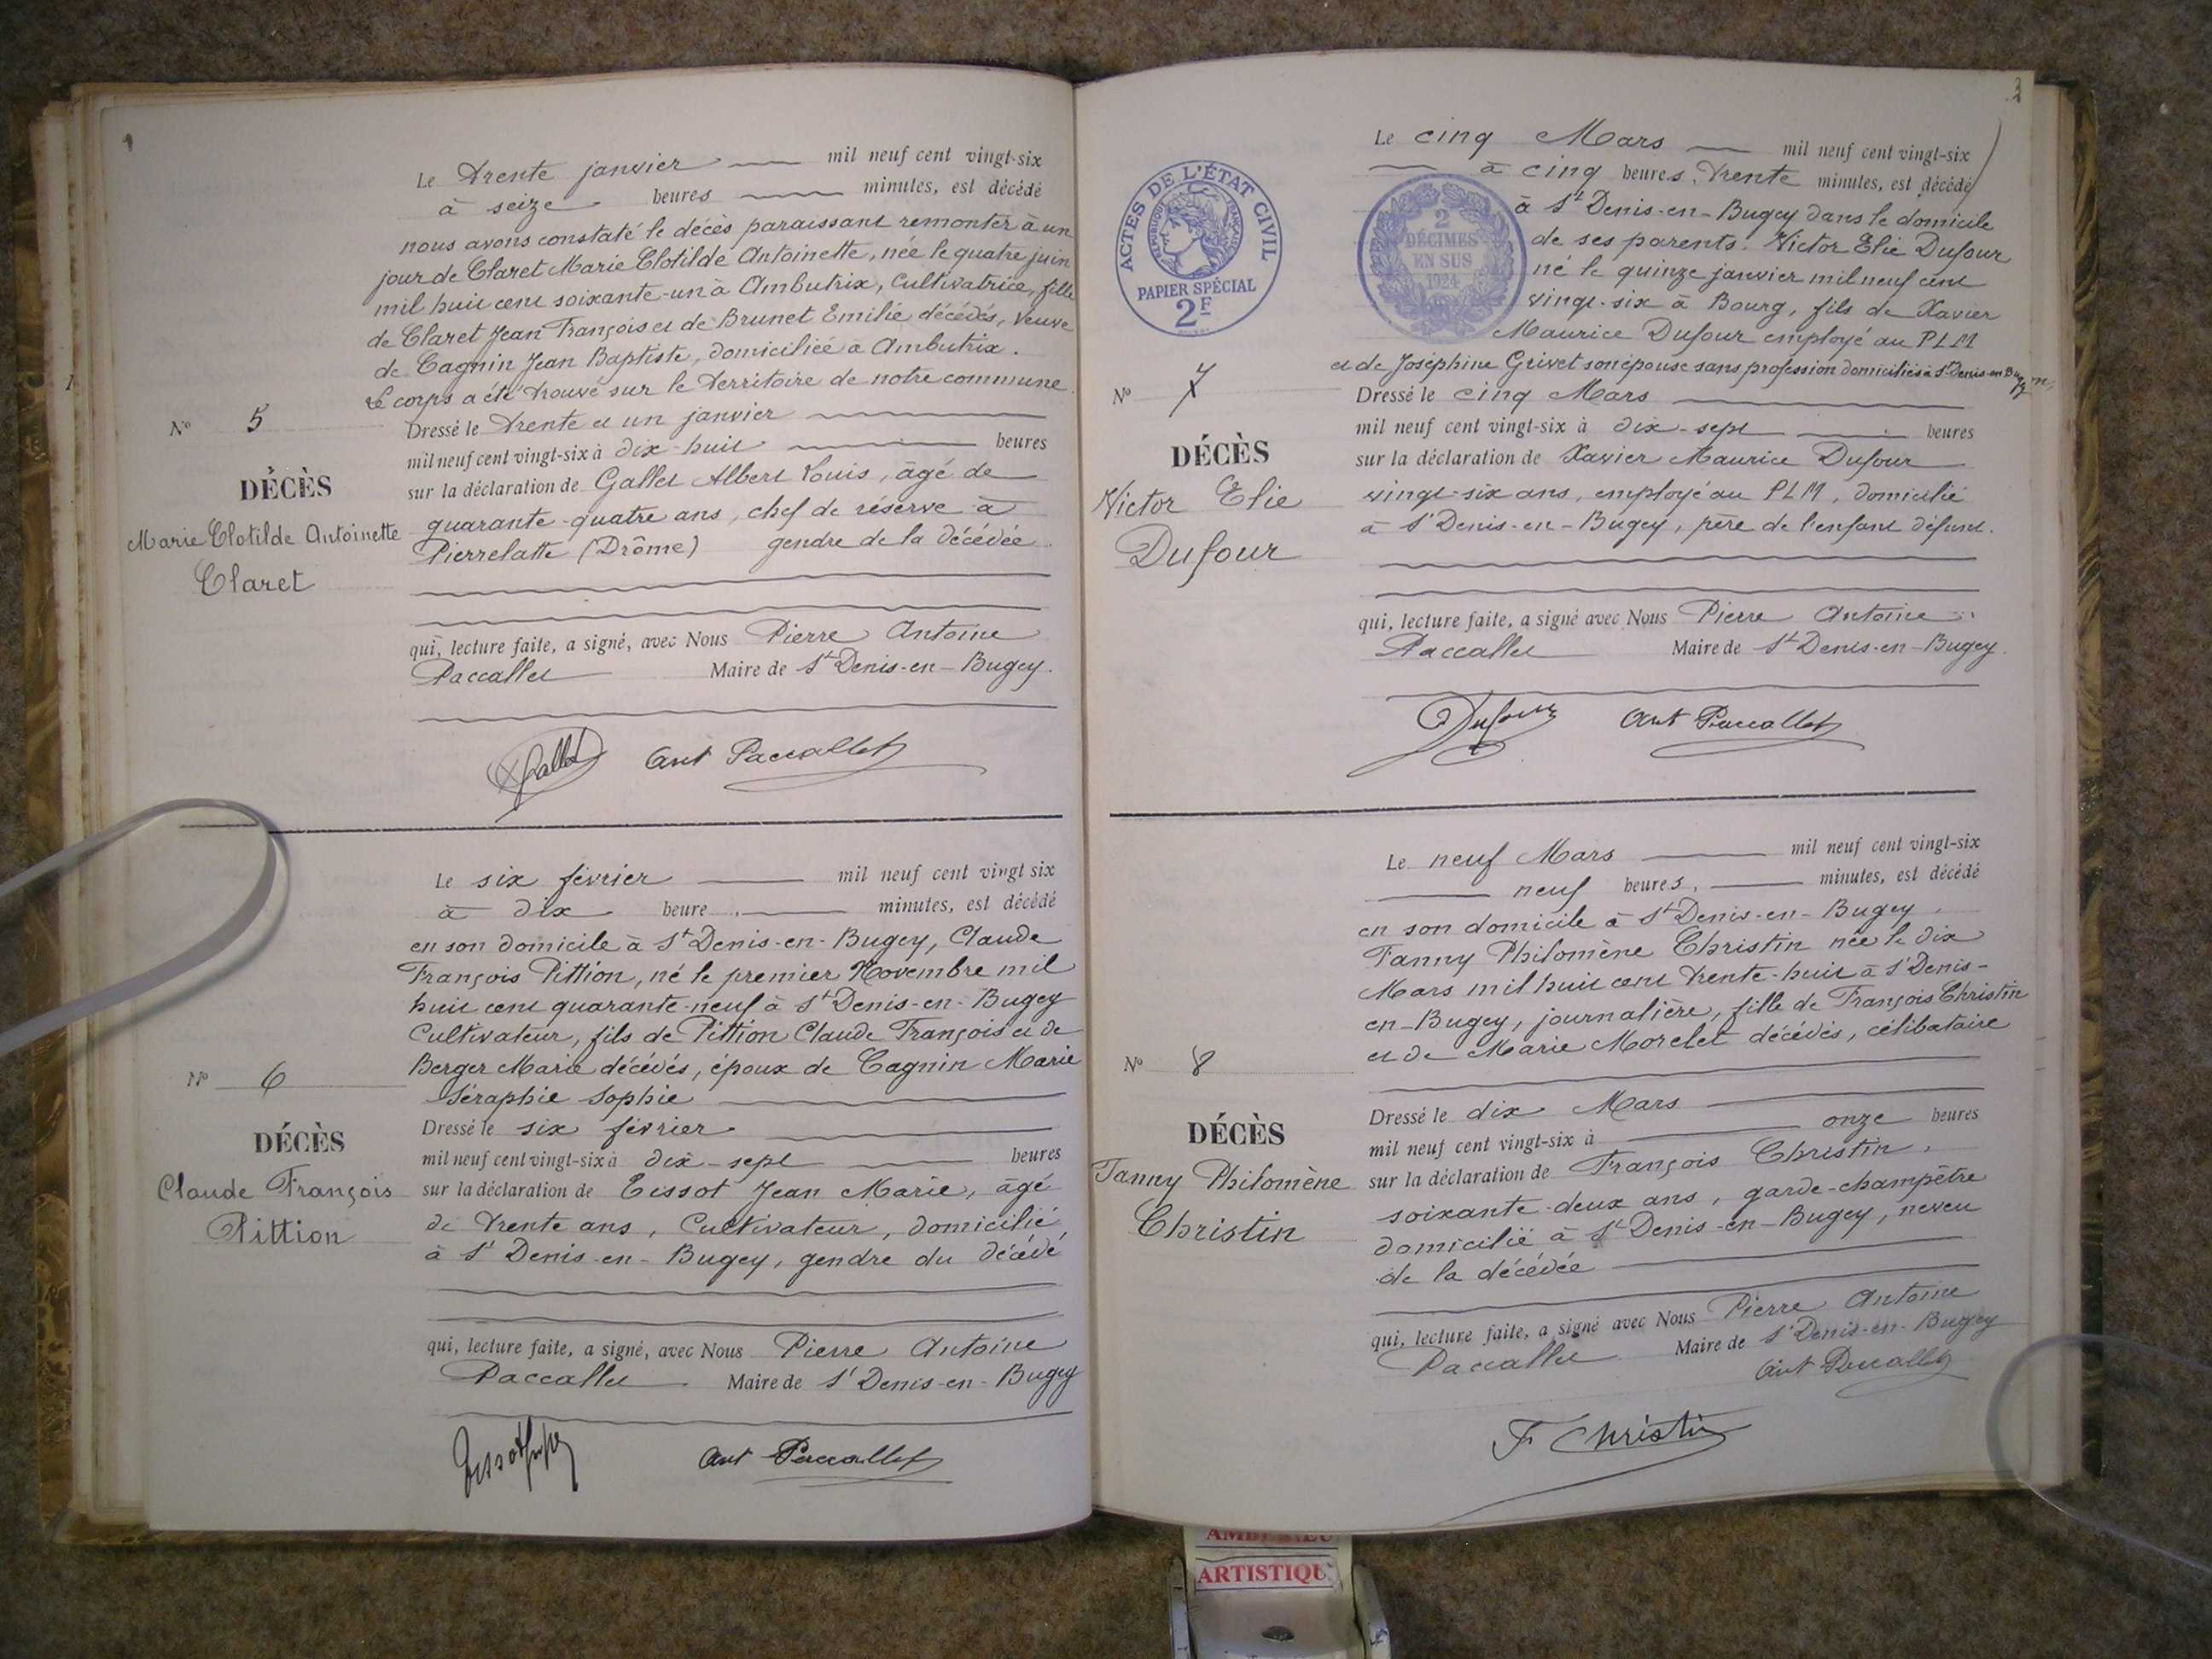 Le trente janvier mil neuf cent vingt-six
à seize heures minutes, est décédé
nous avons constaté le décès paraissant remonter à un
jour de Claret Marie Clotilde Antoinette, née le quatre juin
mil huit cent soixante-un à Ambutrix, Cultivatrice, fille
de Claret Jean François et de Brunet Emilie décédés, veuve
de Cagnin Jean Baptiste, domiciliée à Ambutrix.
Le corps a été trouvé sur le territoire de notre commune
No 5
DÉCÈS
Marie Clotilde Antoinette
Claret
Dressé le trente et un janvier
mil neuf cent vingt-six à dix-huit heures
sur la déclaration de Gallet Albert Louis, âgé de
quarante-quatre ans, chef de réserve à
Pierrelatte (Drôme) gendre de la décédée
qui, lecture faite, a signé, avec Nous Pierre Antoine
Paccallet Maire de St Denis-en-Bugey.
Gallet Ant Paccallet
Le six février mil neuf cent vingt six
à dix heure minutes, est décédé
en son domicile à St Denis-en-Bugey, Claude
François Pittion, né le premier Novembre mil
huit cent quarante-neuf à St Denis-en-Bugey
Cultivateur, fils de Pittion Claude François et de
Berger Marie décédés, époux de Cagnin Marie
Séraphie Sophie
No 6
DÉCÈS
Claude François
Pittion
Dressé le six février
mil neuf cent vingt-six à dix-sept heures
sur la déclaration de Tissot Jean Marie, âgé
de trente ans, Cultivateur, domicilié
à St Denis-en-Bugey, gendre du décédé
qui, lecture faite, a signé, avec Nous Pierre Antoine
Paccallet Maire de St Denis-en-Bugey
Ant Paccallet
ACTES DE L'ÉTAT CIVIL
RÉPUBLIQUE FRANÇAISE
PAPIER SPÉCIAL
2F
2
DÉCIMES
EN SUS
1924
Le cinq Mars mil neuf cent vingt-six
à cinq heures, trente minutes, est décédé
à St Denis-en-Bugey dans le domicile
de ses parents. Victor Elie Dufour
né le quinze janvier mil neuf cent
vingt-six à Bourg, fils de Xavier
Maurice Dufour employé au PLM
et de Joséphine Grivet son épouse sans profession domiciliés à St Denis-en-Bugey
No 7
DÉCÈS
Victor Elie
Dufour
Dressé le cinq Mars
mil neuf cent vingt-six à dix-sept heures
sur la déclaration de Xavier Maurice Dufour
vingt-six ans, employé au PLM, domicilié
à St Denis-en-Bugey, père de l'enfant défunt.
qui, lecture faite, a signé avec Nous Pierre Antoine
Paccallet Maire de St Denis-en-Bugey.
Dufour Ant Paccallet
Le neuf Mars mil neuf cent vingt-six
neuf heures, minutes, est décédé
en son domicile à St Denis-en-Bugey,
Fanny Philomène Christin née le dix
Mars mil huit cent trente-huit à St Denis-
en-Bugey, journalière, fille de François Christin
et de Marie Morelet décédés, célibataire
No 8
DÉCÈS
Fanny Philomène
Christin
Dressé le dix Mars
mil neuf cent vingt-six à onze heures
sur la déclaration de François Christin,
soixante-deux ans, garde-champêtre
domicilié à St Denis-en-Bugey, neveu
de la décédée
qui, lecture faite, a signé avec Nous Pierre Antoine
Paccallet Maire de St Denis-en-Bugey
Ant Paccallet
F Christin
ARTISTIQU